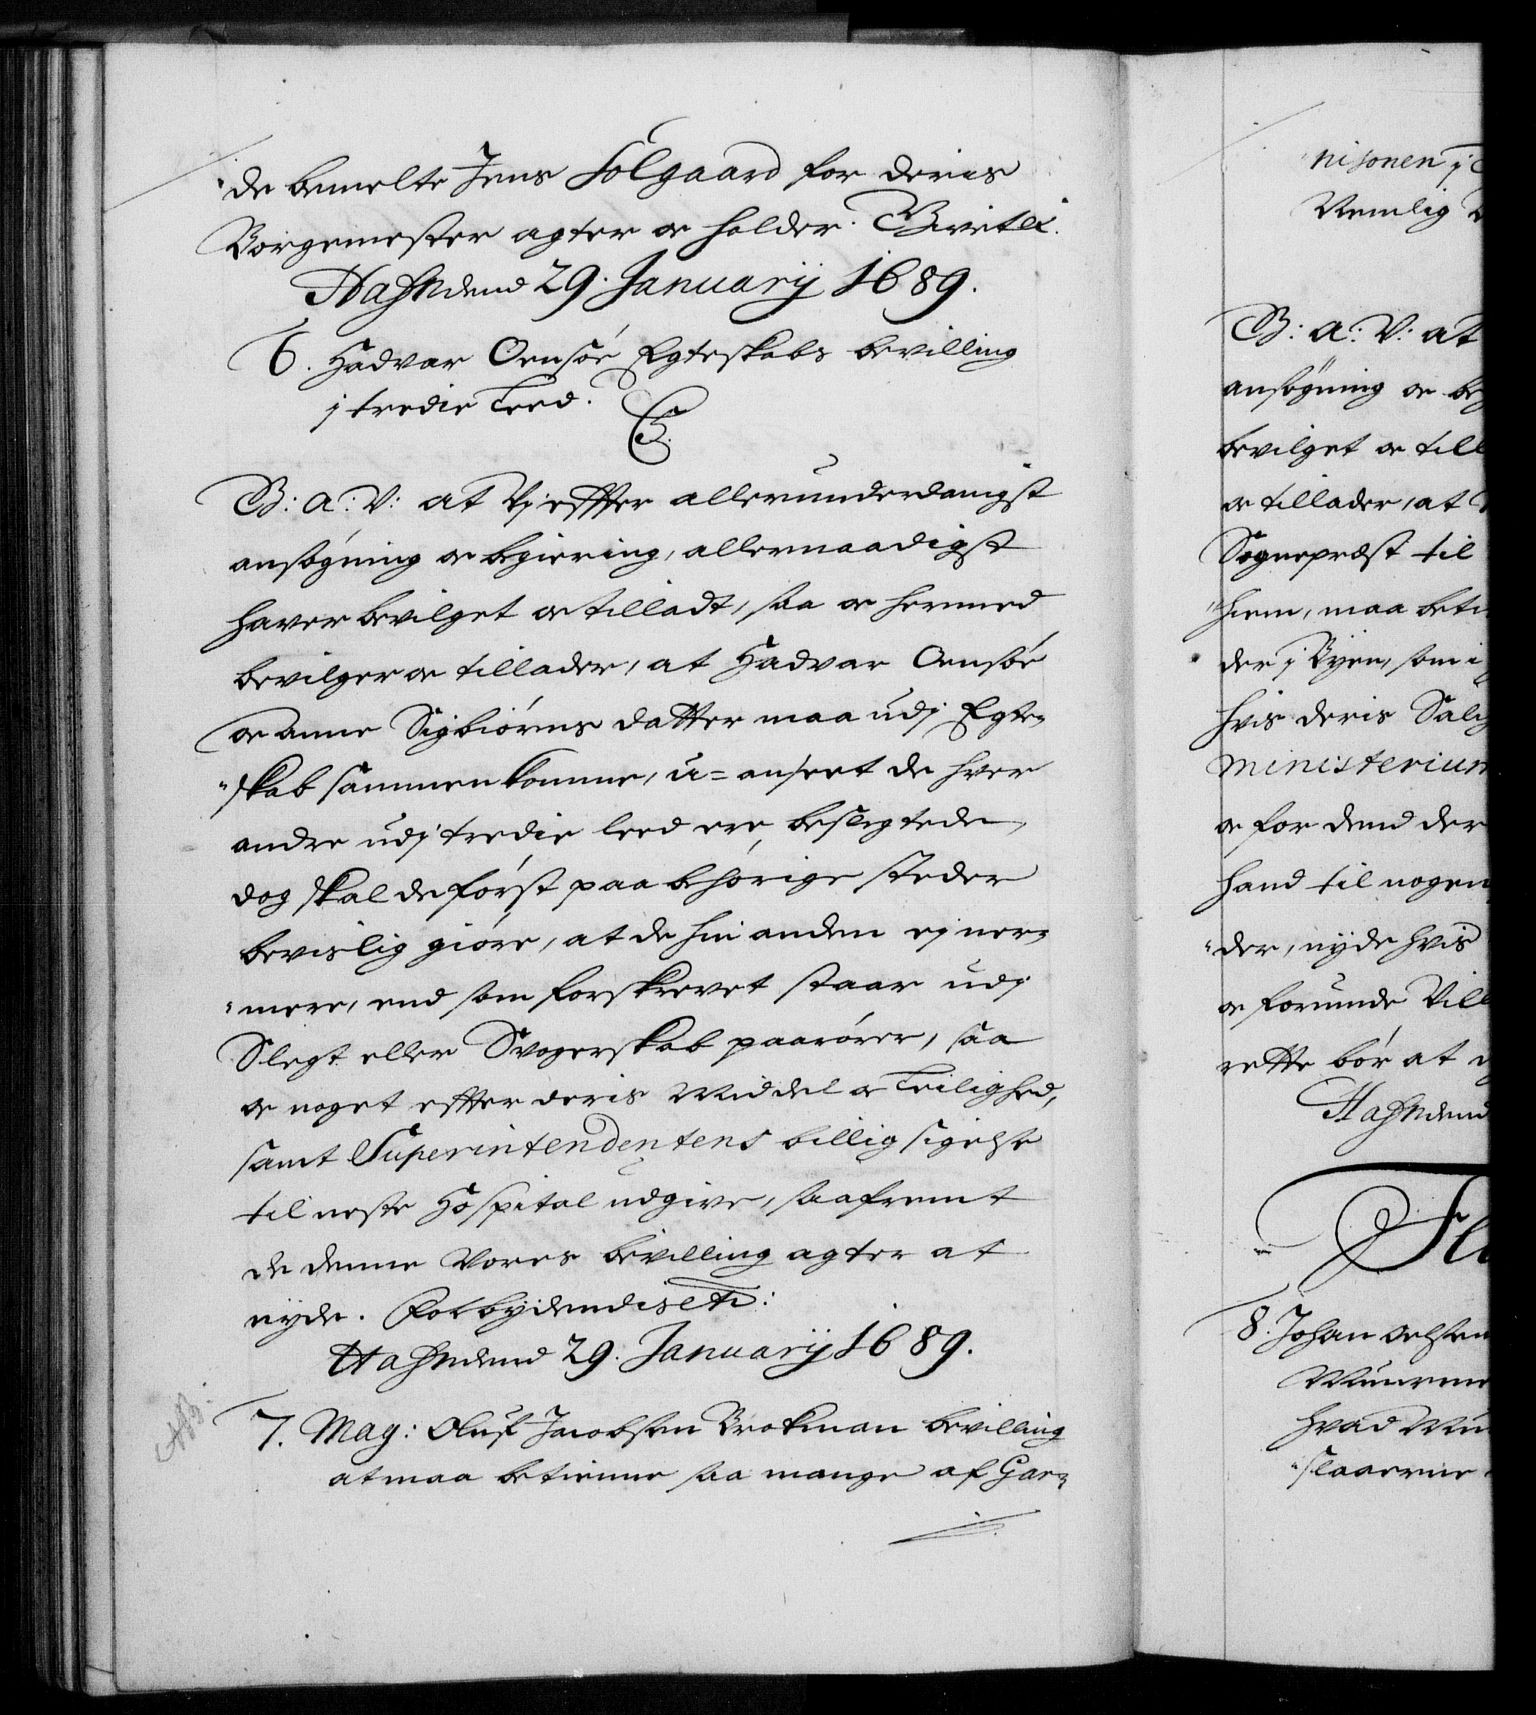 de bemelte Jens Solgaard for deris
Borgemester agter oc holder. Givet &.
Hafn dend 29. Januarij 1689.
6. Hadvar Oensöe Egteskabs bevilling
j tredie Leed.
C5.
G: a: V: at Vj effter allerunderdanigst
ansögning oc begiering, allernaadigst
haver bevilget oc tilladt, saa oc hermed
bevilger oc tillader, at Hadvar Oensöe
oc Anne Sigbiörns datter maa udj Egte=
"skab sammen komme, u=anseet de hver
andre udj tredie leed ere beslegtede,
dog skal de först paa behörige steder
bevislig giöre, at de hin anden ej ner=
"mere, end som forskrevet staar udj
Slegt eller Svogerskab paarörer, saa
oc noget effter deris Middel oc Leilighed,
samt Superintendentens billig sigelse
til neste Hospital udgive, saafremt
de denne Vores bevilling agter at
nyde. Forbydendis etc:
Hafn dend 29. Januarij 1689.
NB:
7. Mag: Oluf Jacobsen Brokman bevilling
at maa betienne saa mange af Gar=
nisonen j
Nemlig
G: a: V: at
ansögning oc beg
bevilget oc till
oc tillader, at
Sognepræst til
"hiem, maa beti
der j Byen, som i
hvis deris Salig
ministerium
oc for dend der
hand til nogen
"der, nyde hvis
oc forunde Vill
rette bör at
Hafn dend
8. Johan
Muurme
hvad Mu
"slaaerne